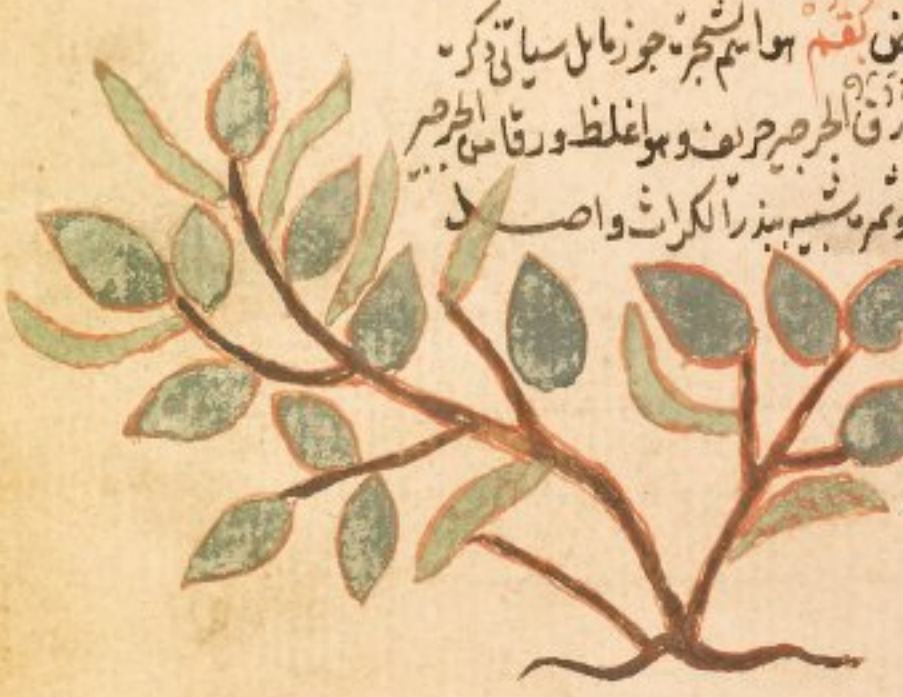 بقم هو اسم لشجرة جوز مابل سياتي ذكره
الجرجير حريف وهو اغلظ ورقا من الجرجير
وثمره شبيه ببذر الكراث واصل